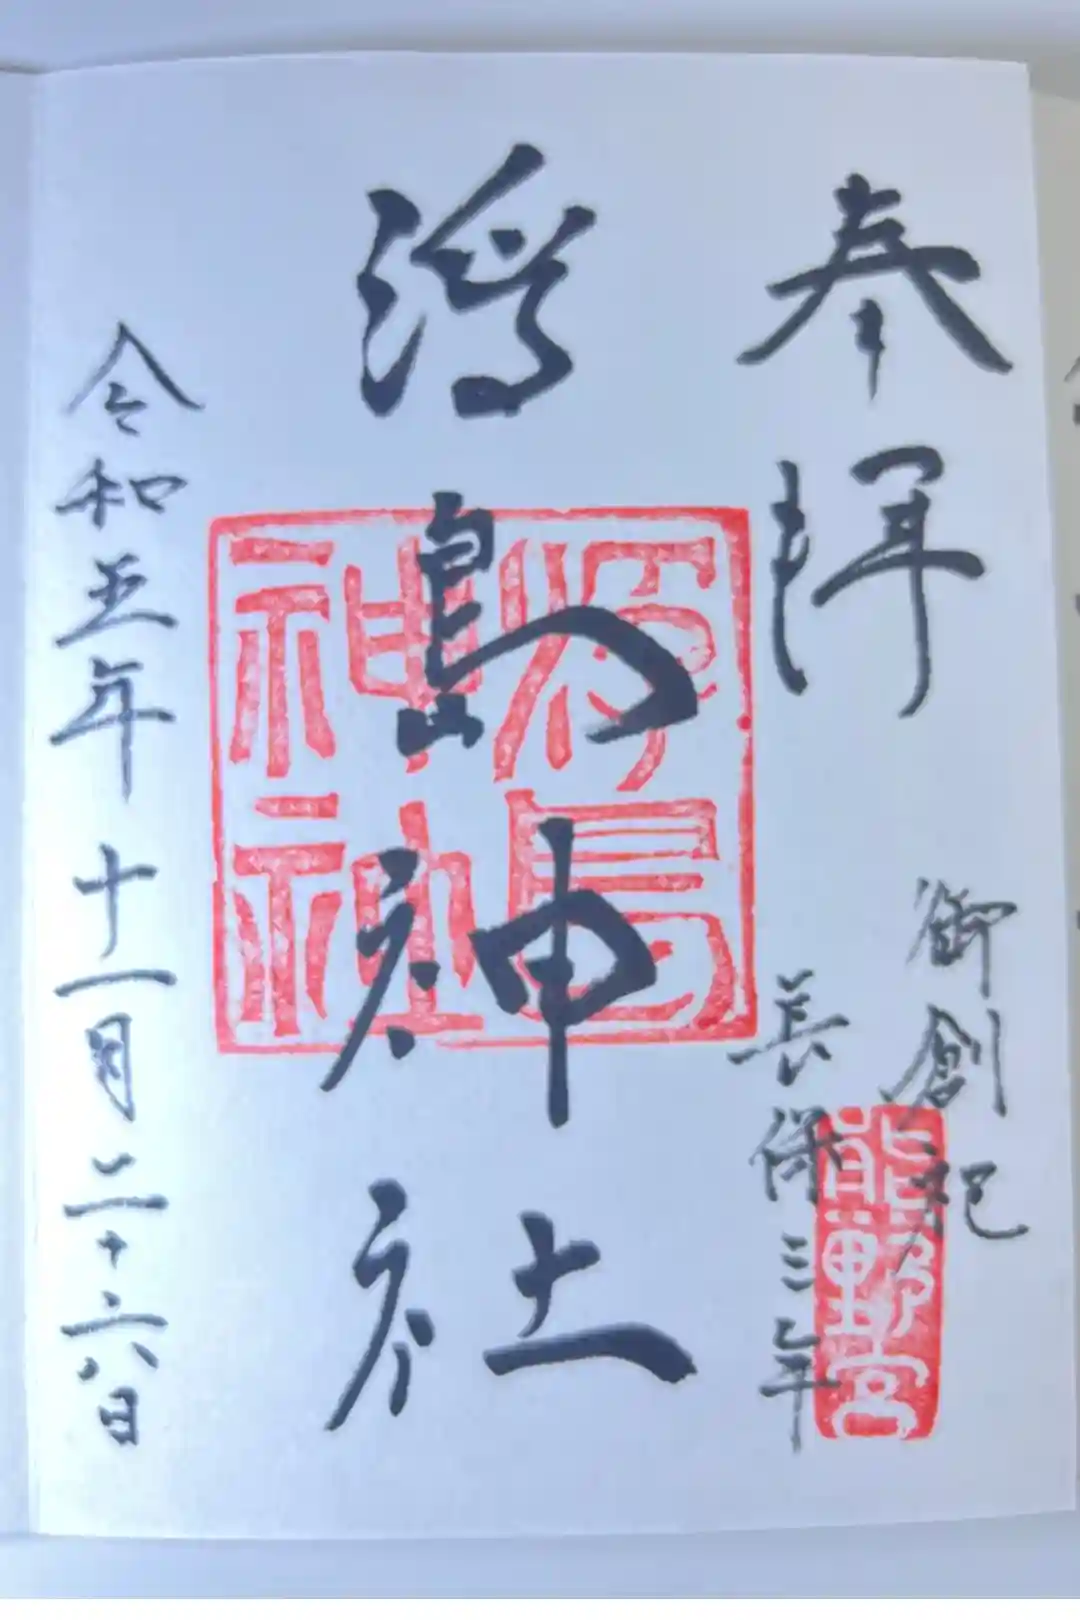 奉拝
御創祀
長保三年
熊野宮
浮島神社
浮島神社
令和五年十一月二十六日